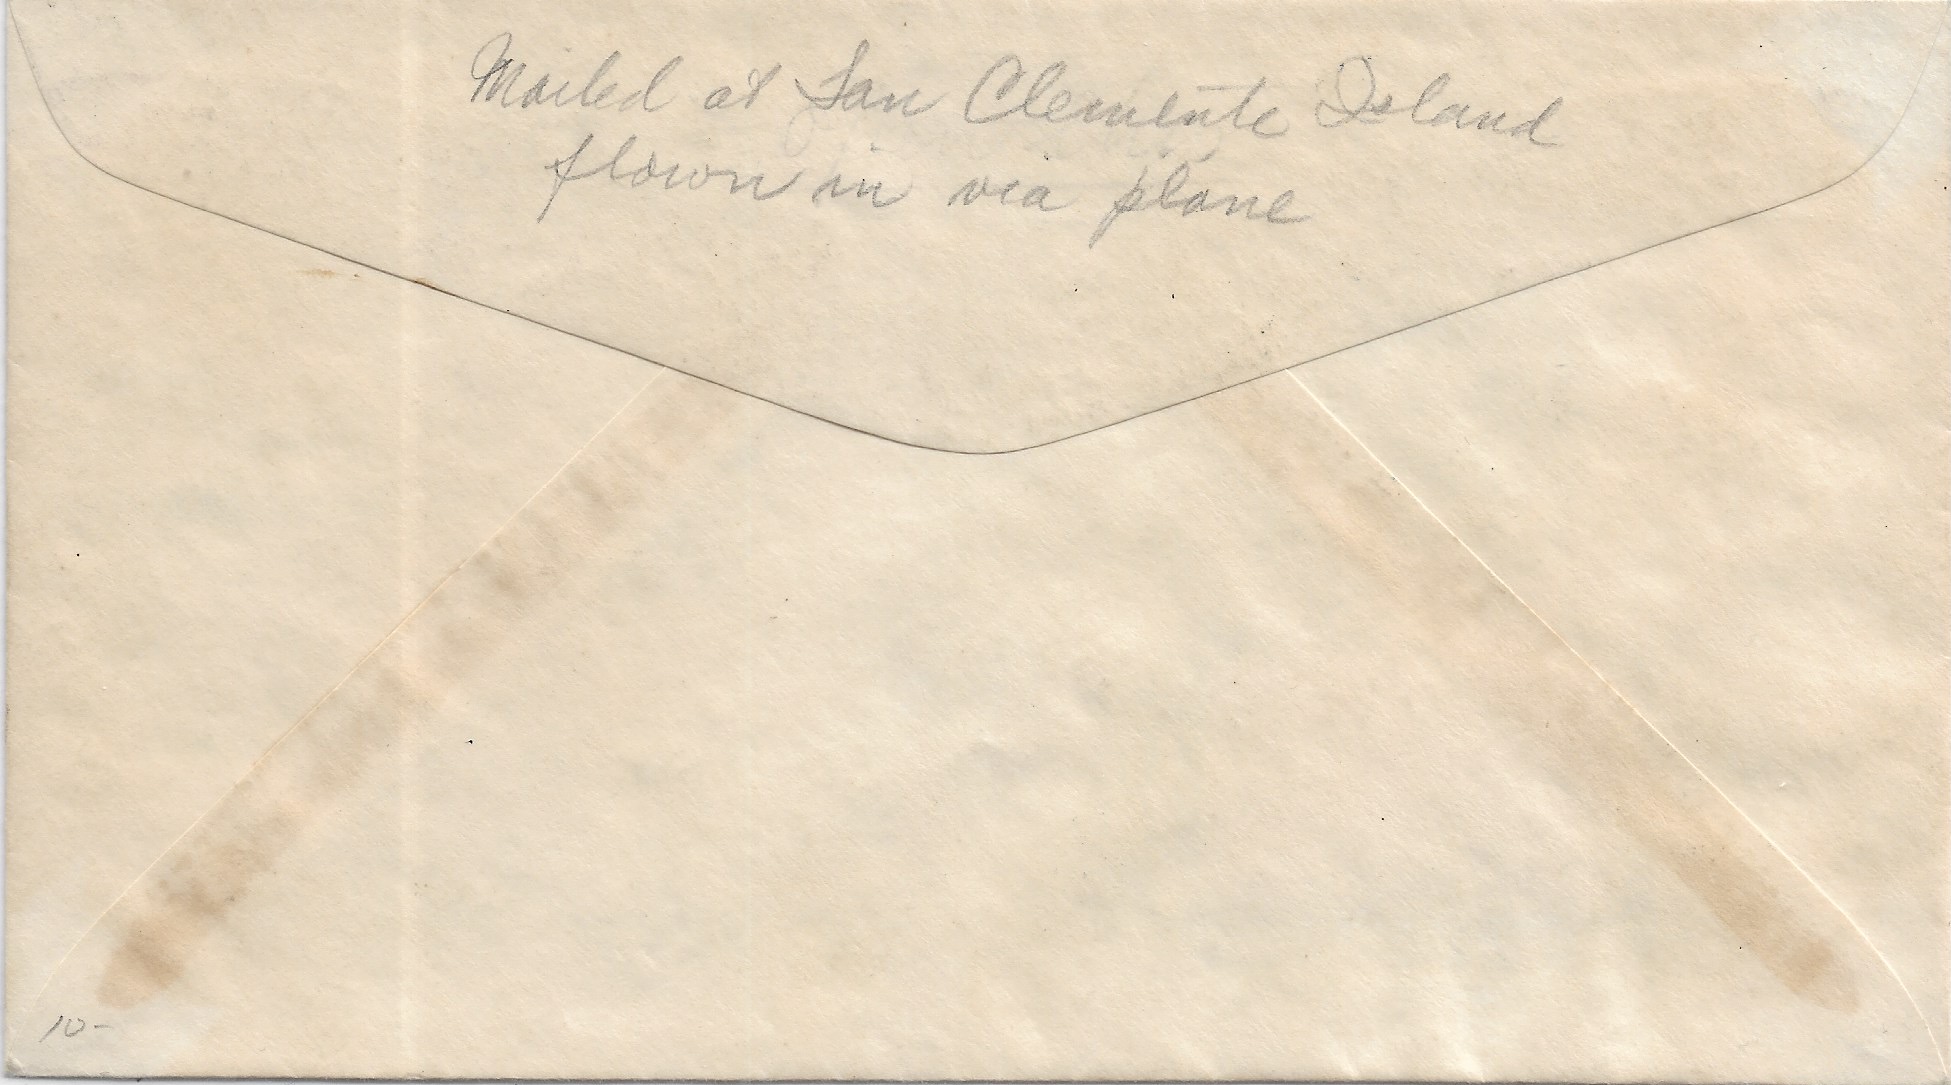 Mailed at San Clemente Island
flown in via plane
10-